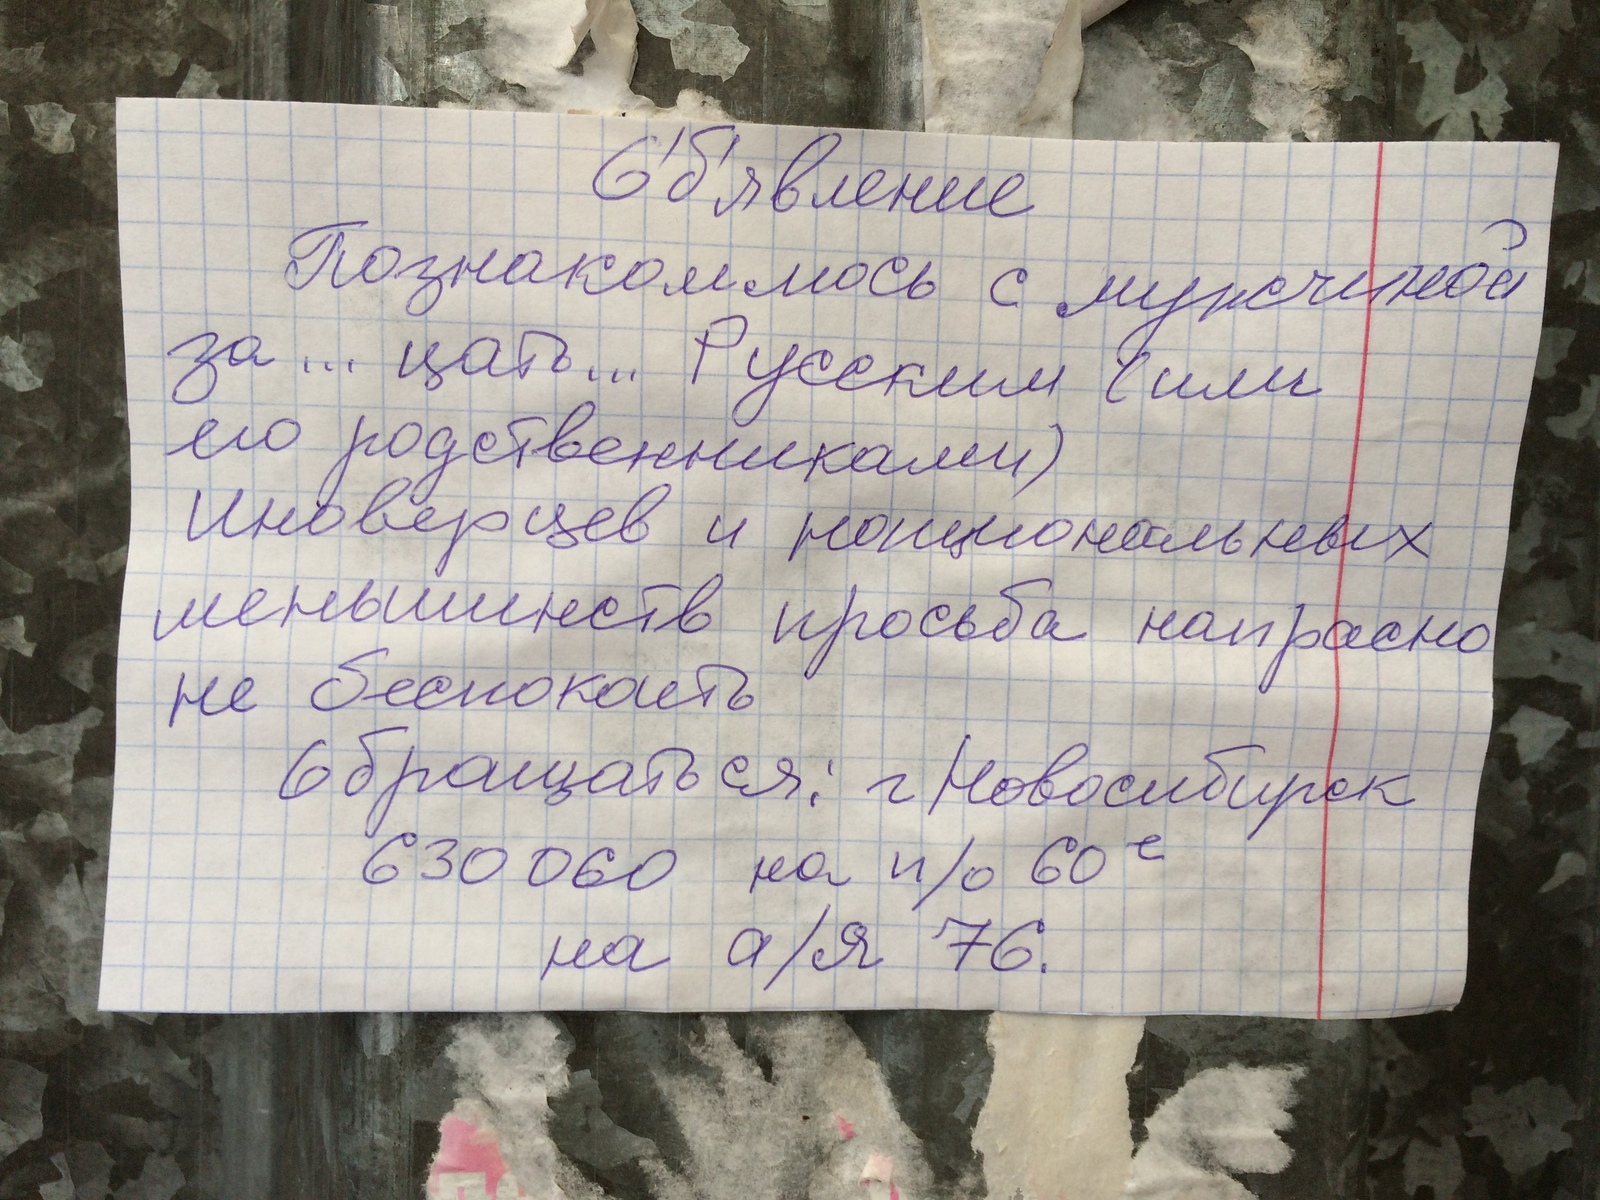 Об'явление
Познакомлюсь с мужчиной
за... цать... Русским (или
его родственниками)
Иноверцев и национальных
меньшинств просьба напрасно
не беспокоить
Обращаться: г Новосибирск
630060 на п/о 60е
на а/я 76.